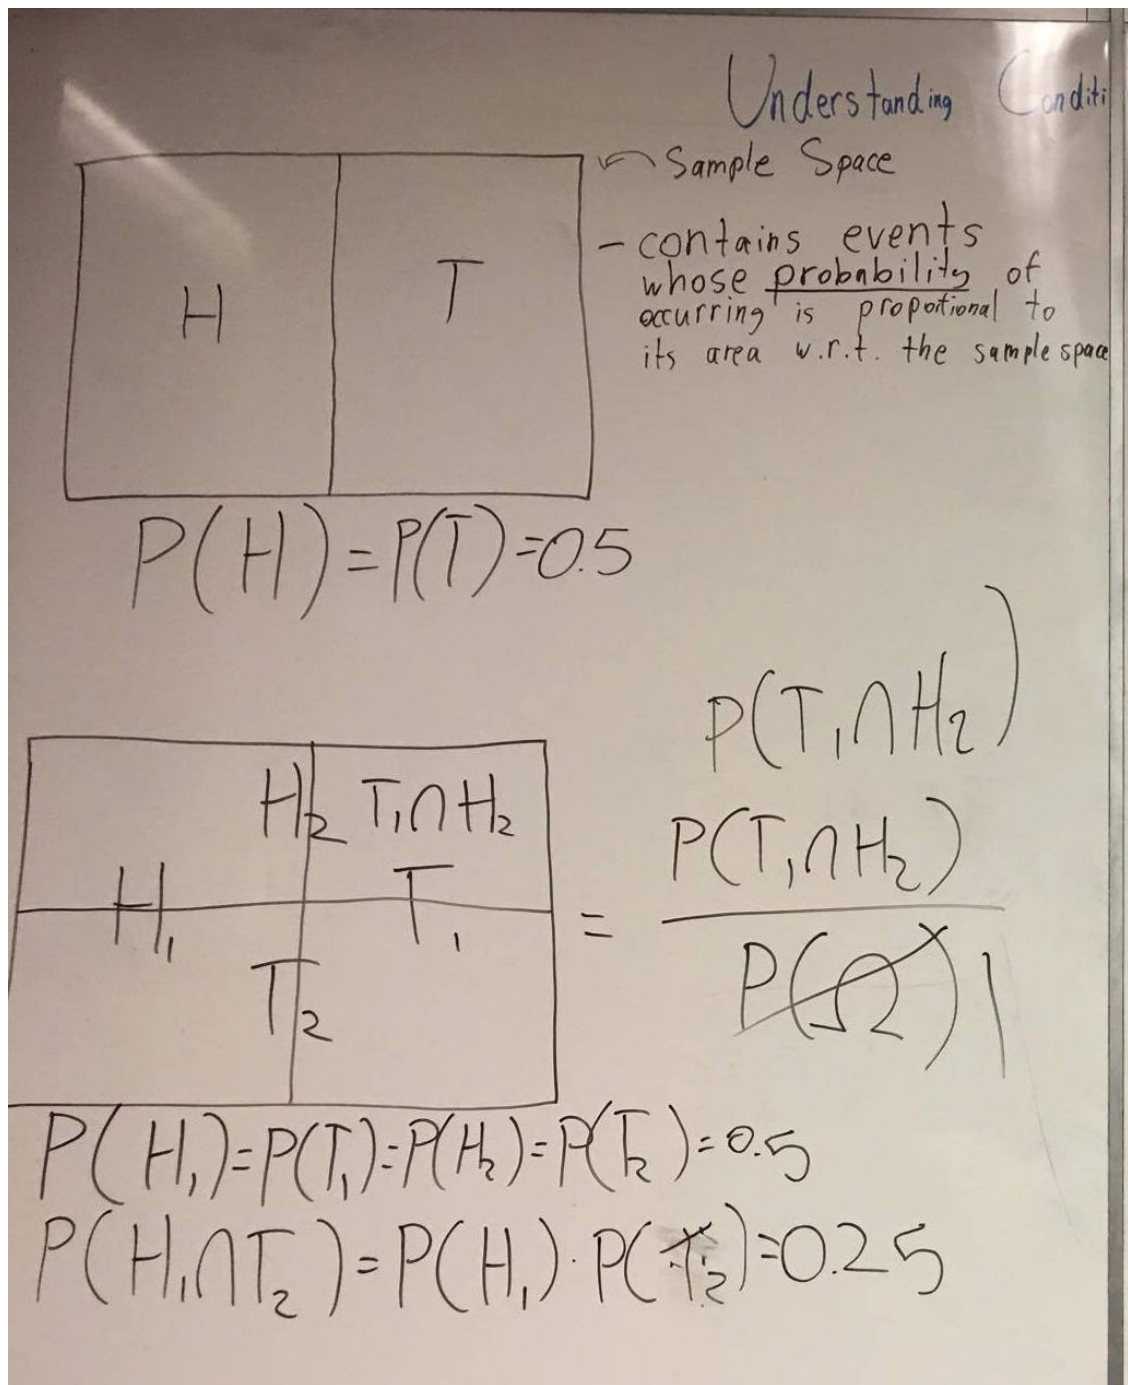 Understanding Conditi
Sample Space
H
T
- contains events
whose probability of
occurring is proportional to
its area w.r.t. the sample space
P(H) = P(T) = 0.5
P(T₁∩H₂)
H₂ T₁∩H₂
H₁ T₁
T₂
= P(T₁∩H₂)
P(Ω) 1
P(H₁) = P(T₁) = P(H₂) = P(T₂) = 0.5
P(H₁∩T₂) = P(H₁) · P(T₂) = 0.25